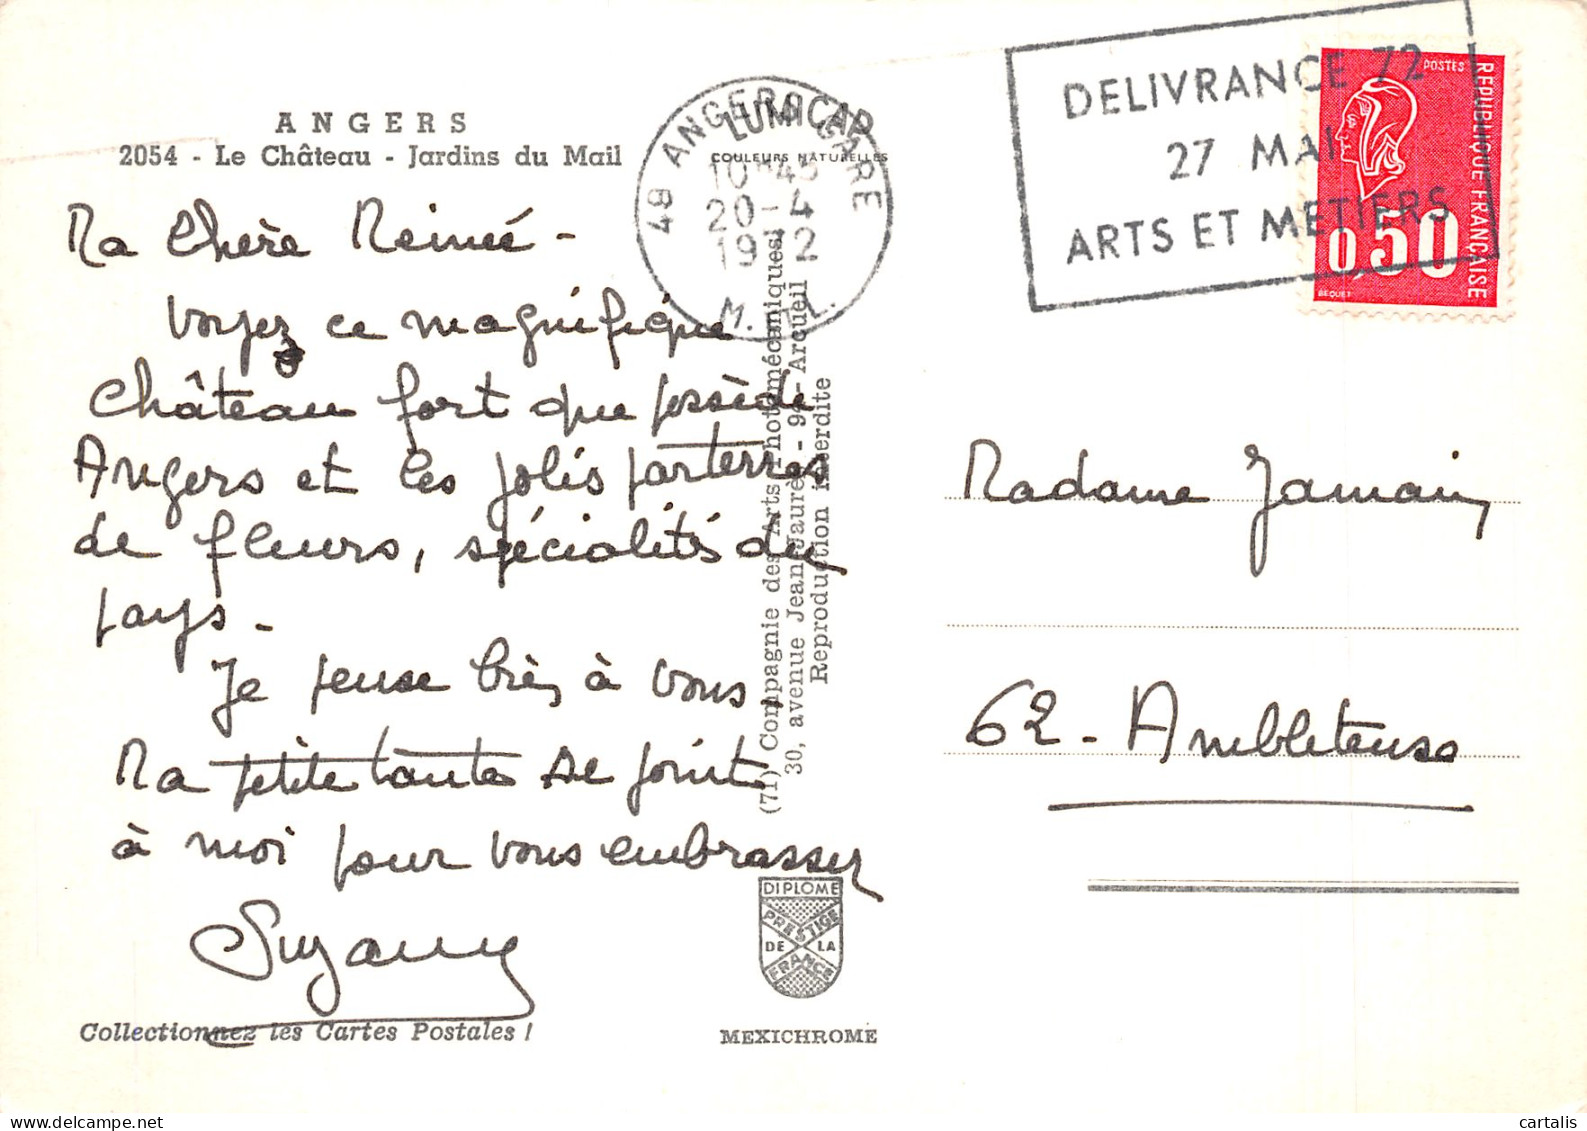 ANGERS
2054 - Le Château - Jardins du Mail
Ma Chère
Voyez ce magnifique
Château fort que possède
Angers et les jolis parterres
de fleurs, spécialités du
pays -
Je pense bien à vous,
Ma petite tante se joint
à moi pour vous embrasser
Suzanne
Collectionnez les Cartes Postales !
49 ANGERS GARE
10H45
20-4
1972
M.-&-L.
LUMICAP
COULEURS NATURELLES
(71) Compagnie des Arts Photomécaniques
30, avenue Jean-Jaurès - 94 - Arcueil
Reproduction interdite
DIPLOME
PRESTIGE
DE LA
FRANCE
MEXICHROME
DELIVRANCE 72
27 MAI
ARTS ET METIERS
POSTES
REPUBLIQUE FRANÇAISE
0,50
BEQUET
Madame Jamain
62 - Ambleteuse
cartalis